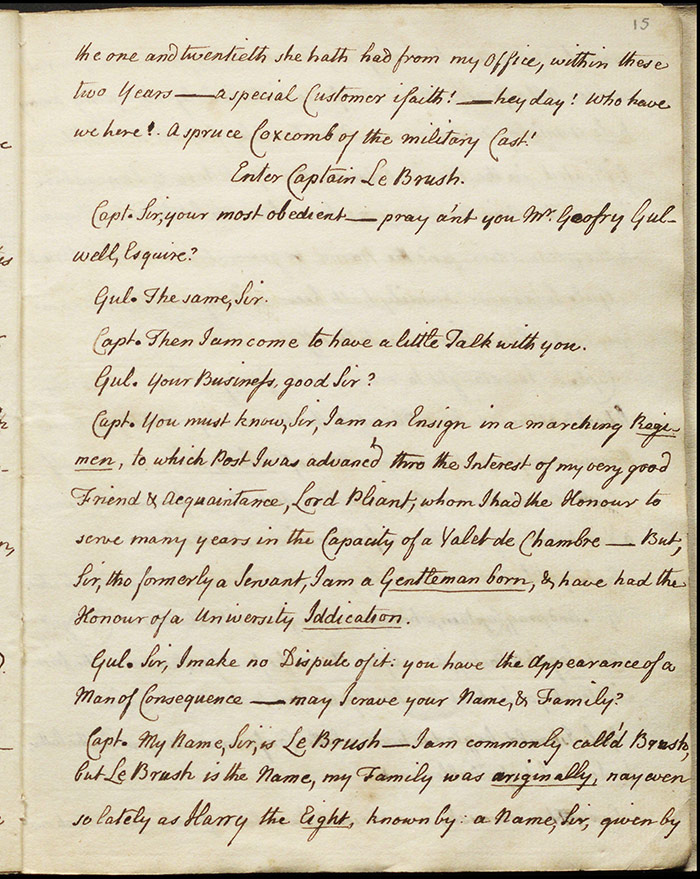 15
the one and twentieth she hath had from my Office, within these
two Years — a special Customer ifaith! — hey day! who have
we here! A spruce Coxcomb of the military Cast!
Enter Captain Le Brush.
Capt. Sir, your most obedient — pray an't you Mr. Geofry Gul-
well, Esquire?
Gul. The same, Sir.
Capt. Then I am come to have a little Talk with you.
Gul. Your Business, good Sir?
Capt. You must know, Sir, I am an Ensign in a marching Regi-
men, to which Post I was advanc'd thro the Interest of my very good
Friend & Acquaintance, Lord Pliant, whom I had the Honour to
serve many years in the Capacity of a Valet de Chambre — But,
Sir, tho formerly a Servant, I am a Gentleman born, & have had the
Honour of a University Iddication.
Gul. Sir, I make no Dispute of it: you have the Appearance of a
Man of Consequence — may I crave your Name, & Family?
Capt. My Name, Sir, is Le Brush — I am commonly call'd Brush,
but Le Brush is the Name, my Family was originally, nay even
so lately as Harry the Eight, known by: a Name, Sir, given by